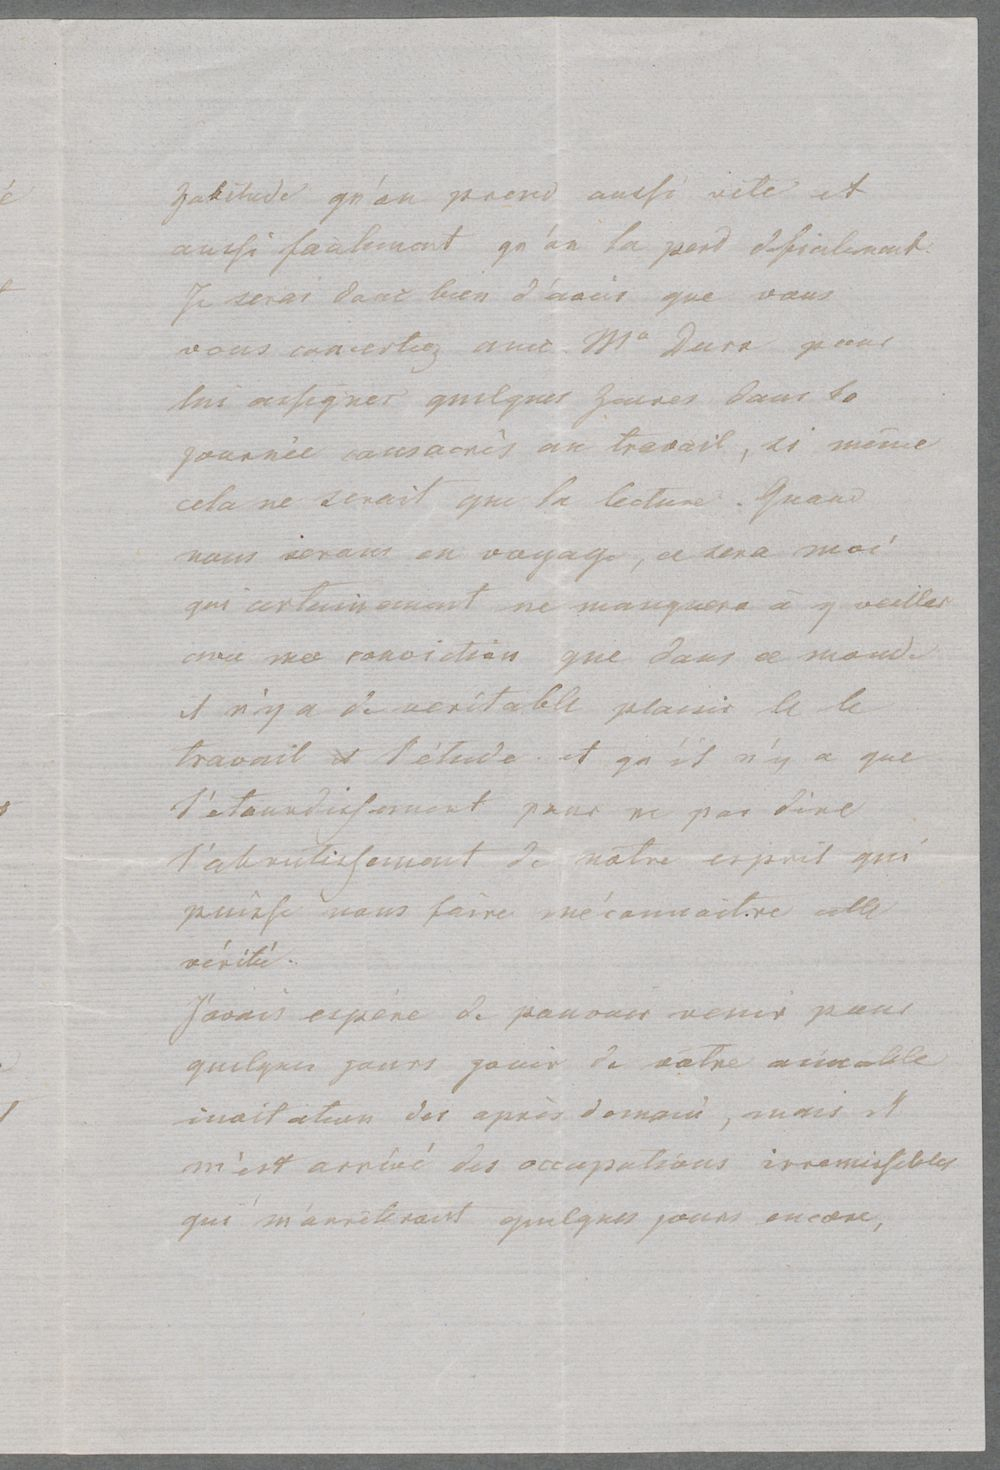 habitude qu'on prend aussi vite et
aussi facilement qu'on la perd dificilement.
Je serai donc bien d'avis que vous
vous concertiez avec Mr pour
lui assigner quelques heures dans la
journée consacrés au travail, si même
cela ne serait que la lecture. Quand
nous serons en voyage, ce sera moi
qui certainement ne manquera à y veiller
avec ma conviction que dans ce monde
il n'y a de veritable plaisir le
travail et l'étude et qu'il n'y a que
l'étourdissement pour ne pas dire
l'abrutissement de notre esprit qui
puisse nous faire méconnaitre cette
vérité.
J'avais espéré de pouvoir venir pour
quelques jours jouir de votre aimable
invitation des après demain, mais il
m'est arrivé des occupations irremissibles
qui m'arrêteront quelques jours encore,